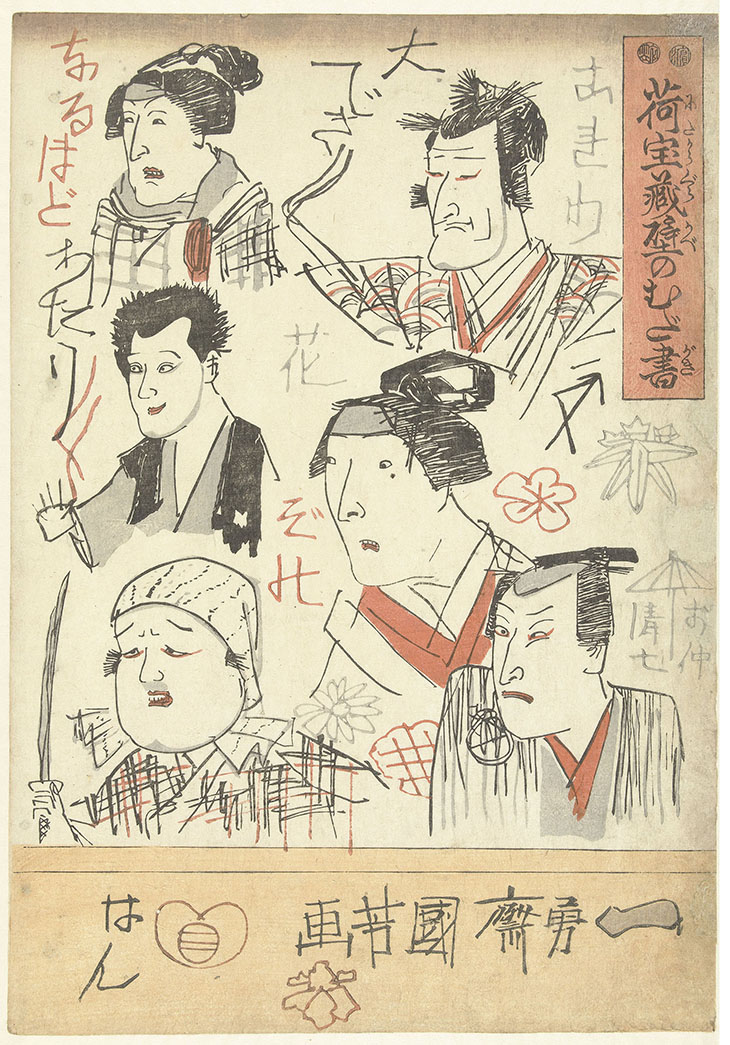 荷宝蔵壁のむだ書
にたからぐら かべ がき
大でき
なるほど
あたり
花
ぞ
お仲
清七
一勇齋國芳画
はん